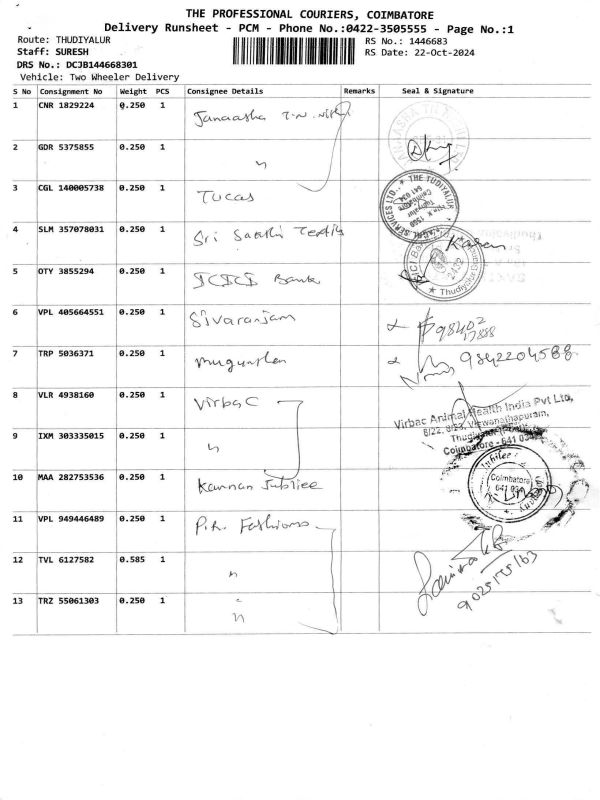 THE PROFESSIONAL COURIERS, COIMBATORE
Delivery Runsheet - PCM - Phone No.:0422-3505555 - Page No.:1
Route: THUDIYALUR RS No.: 1446683
Staff: SURESH RS Date: 22-Oct-2024
DRS No.: DCJB144668301
Vehicle: Two Wheeler Delivery
S No Consignment No Weight PCS Consignee Details Remarks Seal & Signature
1 CNR 1829224 0.250 1
2 GDR 5375855 0.250 1 "
3 CGL 140005738 0.250 1 Tucas
THE TUDIYALUR
641 034
4 SLM 357078031 0.250 1 Sri Sakthi Textils
5 OTY 3855294 0.250 1 ICICI Bank
2432
Thudiyalur
6 VPL 405664551 0.250 1 Sivaranjam
98402
17888
7 TRP 5036371 0.250 1 mugunthan 9842204588
8 VLR 4938160 0.250 1 Virbac
Virbac Animal Health India Pvt Ltd,
8/22, 8/23, Viswanathapuram,
Coimbatore - 641 034
9 IXM 303335015 0.250 1 "
10 MAA 282753536 0.250 1 Kannan Jubliee
Jubilee
Coimbatore
641 034
11 VPL 949446489 0.250 1 P.K. Fashions
12 TVL 6127582 0.585 1 "
13 TRZ 55061303 0.250 1 "